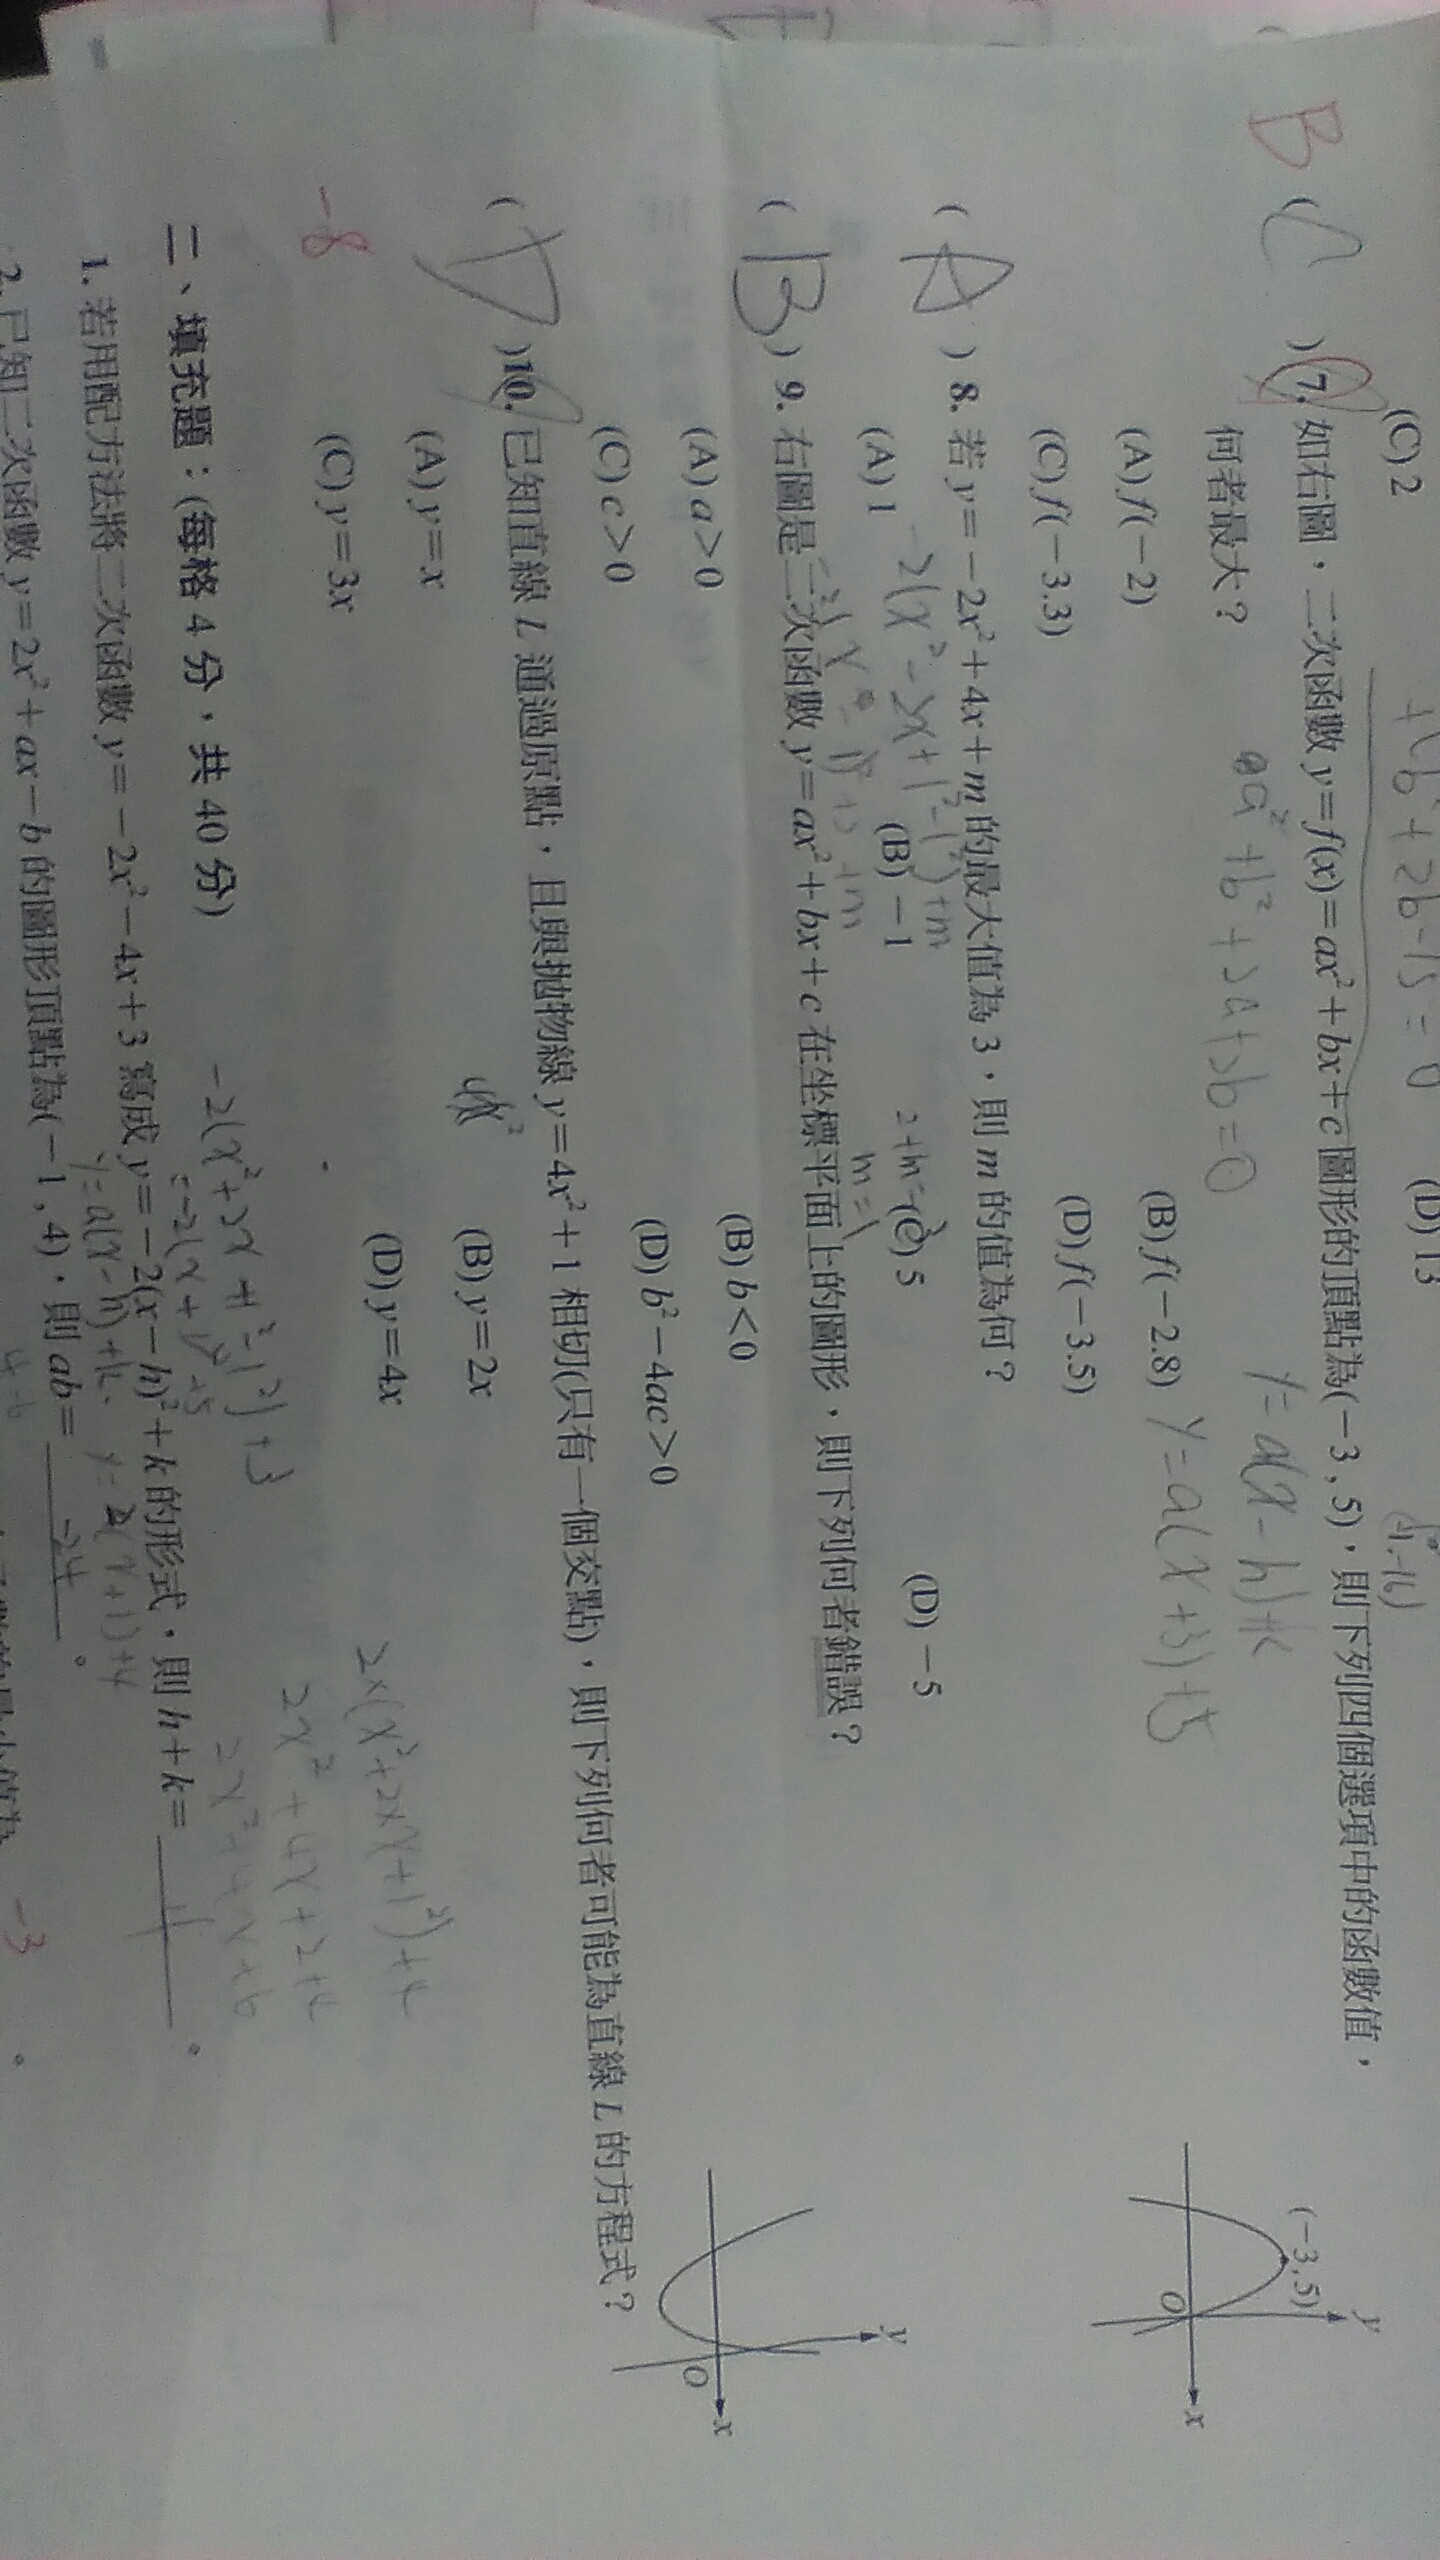 (C) 2
(D) 13
+b²+2b-15=0
B ( C ) 7. 如右圖，二次函數 y=f(x)=ax²+bx+c 圖形的頂點為(-3,5)，則下列四個選項中的函數值，
何者最大？
y=a(x-h)+k
(A) f(-2)
(B) f(-2.8)
y=a(x+3)+5
(C) f(-3.3)
(D) f(-3.5)
(-3,5)
y
O
x
( A ) 8. 若 y=-2x²+4x+m 的最大值為 3，則 m 的值為何？
-2(x²-2x+1²-1²)+m
(A) 1
(B) -1
(C) 5
(D) -5
m=1
( B ) 9. 右圖是二次函數 y=ax²+bx+c 在坐標平面上的圖形，則下列何者錯誤？
(A) a>0
(B) b<0
(C) c>0
(D) b²-4ac>0
y
O
x
( D ) 10. 已知直線 L 通過原點，且與拋物線 y=4x²+1 相切(只有一個交點)，則下列何者可能為直線 L 的方程式？
(A) y=x
(B) y=2x
(C) y=3x
(D) y=4x
-8
2x(x²+2x+1²)+4
2x²+4x+2+4
2x²+4x+6
二、填充題：(每格 4 分，共 40 分)
-2(x²+2x+1²-1²)+3
1. 若用配方法將二次函數 y=-2x²-4x+3 寫成 y=-2(x-h)²+k 的形式，則 h+k=
y=a(x-h)+k
y=2(x+1)+4
2. 已知二次函數 y=2x²+ax-b 的圖形頂點為(-1,4)，則 ab= -24 。
-3